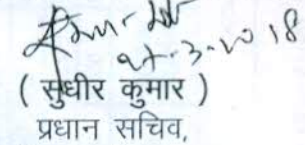 27.3.2018
( सुधीर कुमार )
प्रधान सचिव,